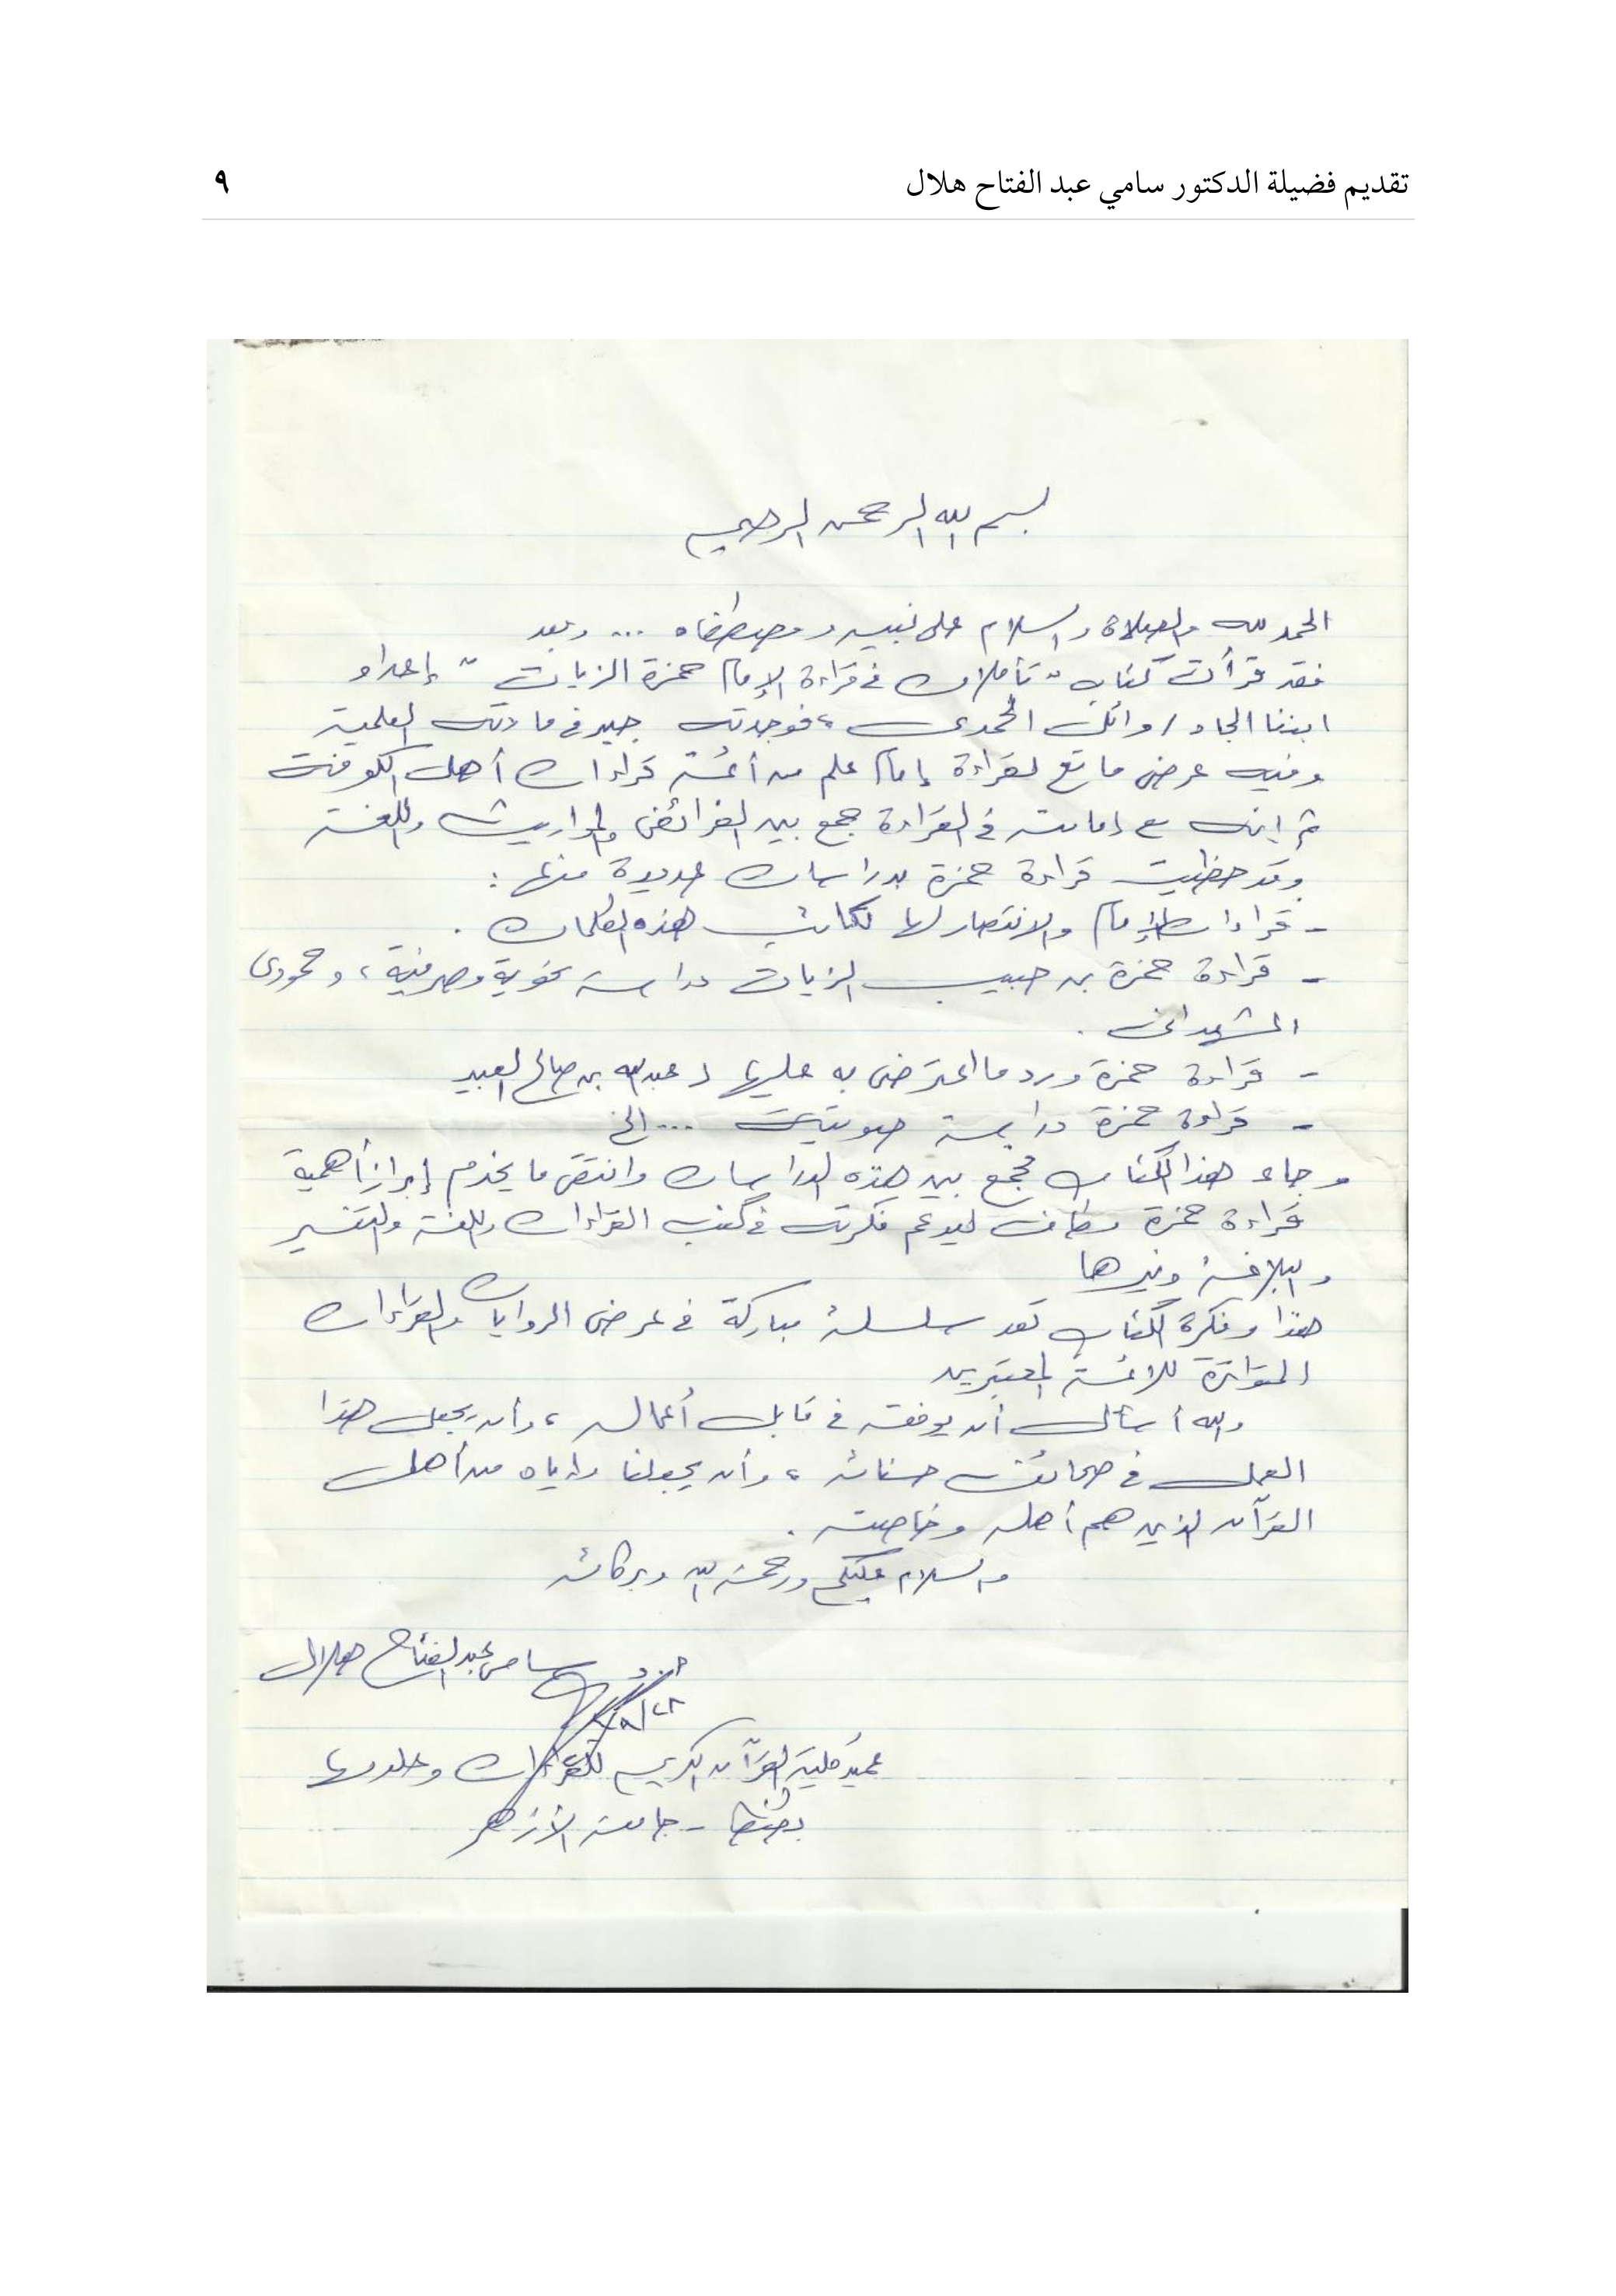 تقديم فضيلة الدكتور سامي عبد الفتاح هلال ٩
بسم الله الرحمن الرحيم
الحمد لله والصلاة والسلام على نبيه ومصطفاه ... وبعد
فقد قرأت كتاب "تأملات في قراءة الإمام حمزة الزيات" إعداد
ابننا الجاد / وائل المحمدى، فوجدته جيد في مادته العلمية
وفيه عرض ماتع لقراءة إمام علم من أئمة قراءات أهل الكوفة
ثم إنه مع إمامته في القراءة جمع بين الفرائض والمواريث واللغة
وقد حظيت قراءة حمزة بدراسات عديدة منها:
- قراءات الإمام والانتصار لها لكاتب هذه الكلمات .
- قراءة حمزة بن حبيب الزيات دراسة نحوية وصرفية، د حمودى
المشهدانى .
- قراءة حمزة ورد ما اعترض به عليها د عبد الله بن صالح العبيد
- قراءة حمزة دراسة صوتية ... الخ
وجاء هذا الكتاب فجمع بين هذه الدراسات وانتقى ما يخدم إبراز أهمية
قراءة حمزة ليدعم فكرته في كتب القراءات واللغة والتفسير
والبلاغة وغيرها
هذا وفكرة الكتاب تعد سلسلة مباركة في عرض الروايات والقراءات
المتواترة للأئمة المعتبرين
والله أسأل أن يوفقه في قابل أعماله، وأن يجعل هذا
العمل في صحائف حسناته، وأن يجعلنا وإياه من أهل
القرآن الذين هم أهله وخاصته .
والسلام عليكم ورحمة الله وبركاته
أ.د سامى عبد الفتاح هلال
عميد كلية القرآن الكريم للقراءات وعلومها
بطنطا - جامعة الأزهر